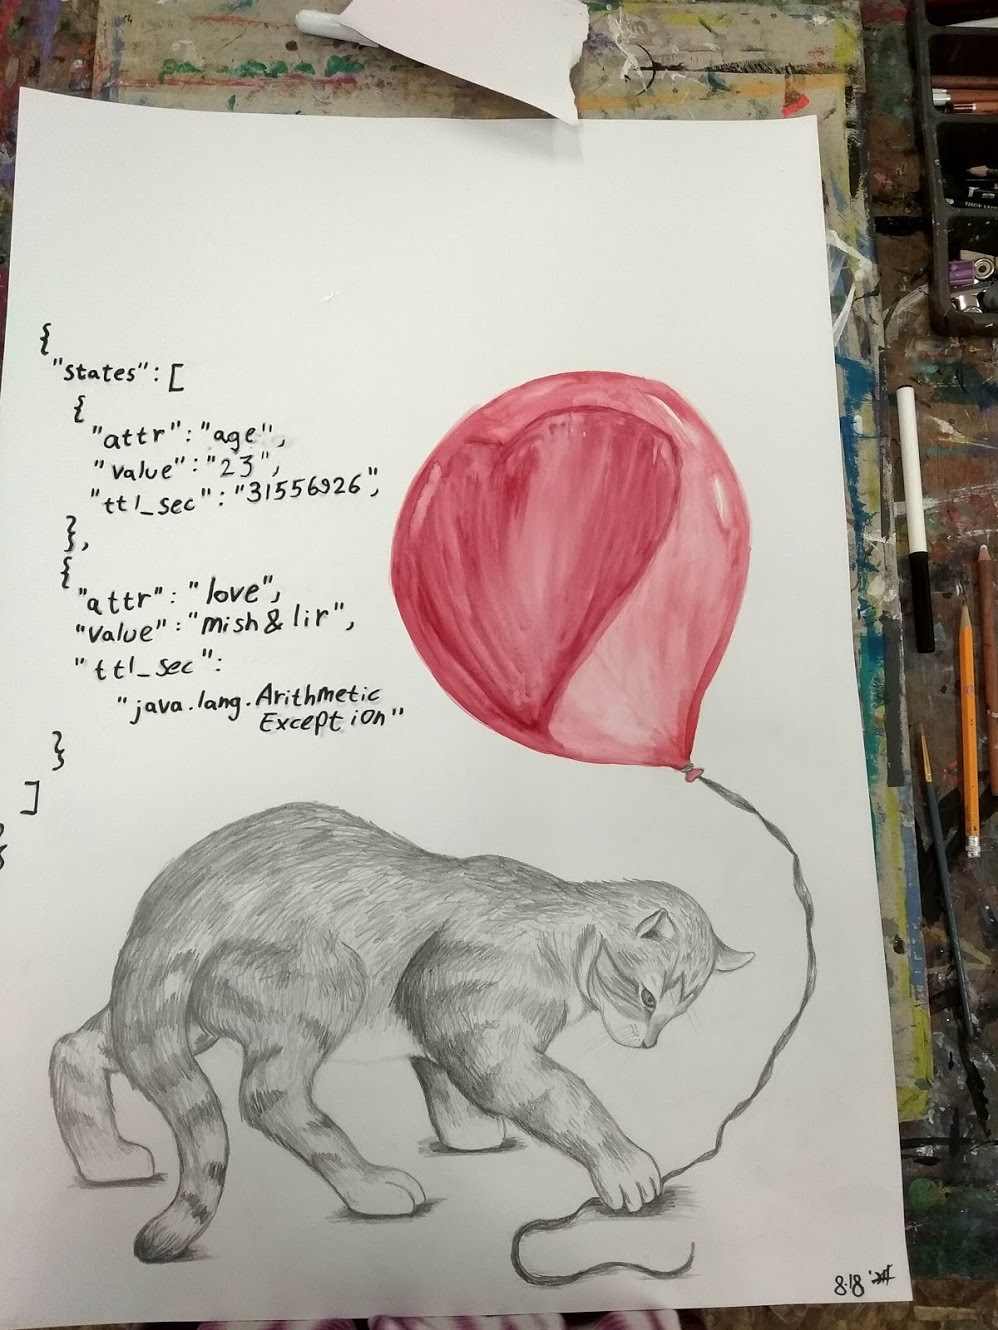 {
"states": [
{
"attr": "age",
"value": "23",
"ttl_sec": "31556926",
},
{
"attr": "love",
"value": "mish & lir",
"ttl_sec":
"java.lang.Arithmetic
Exception"
}
]
}
8.18